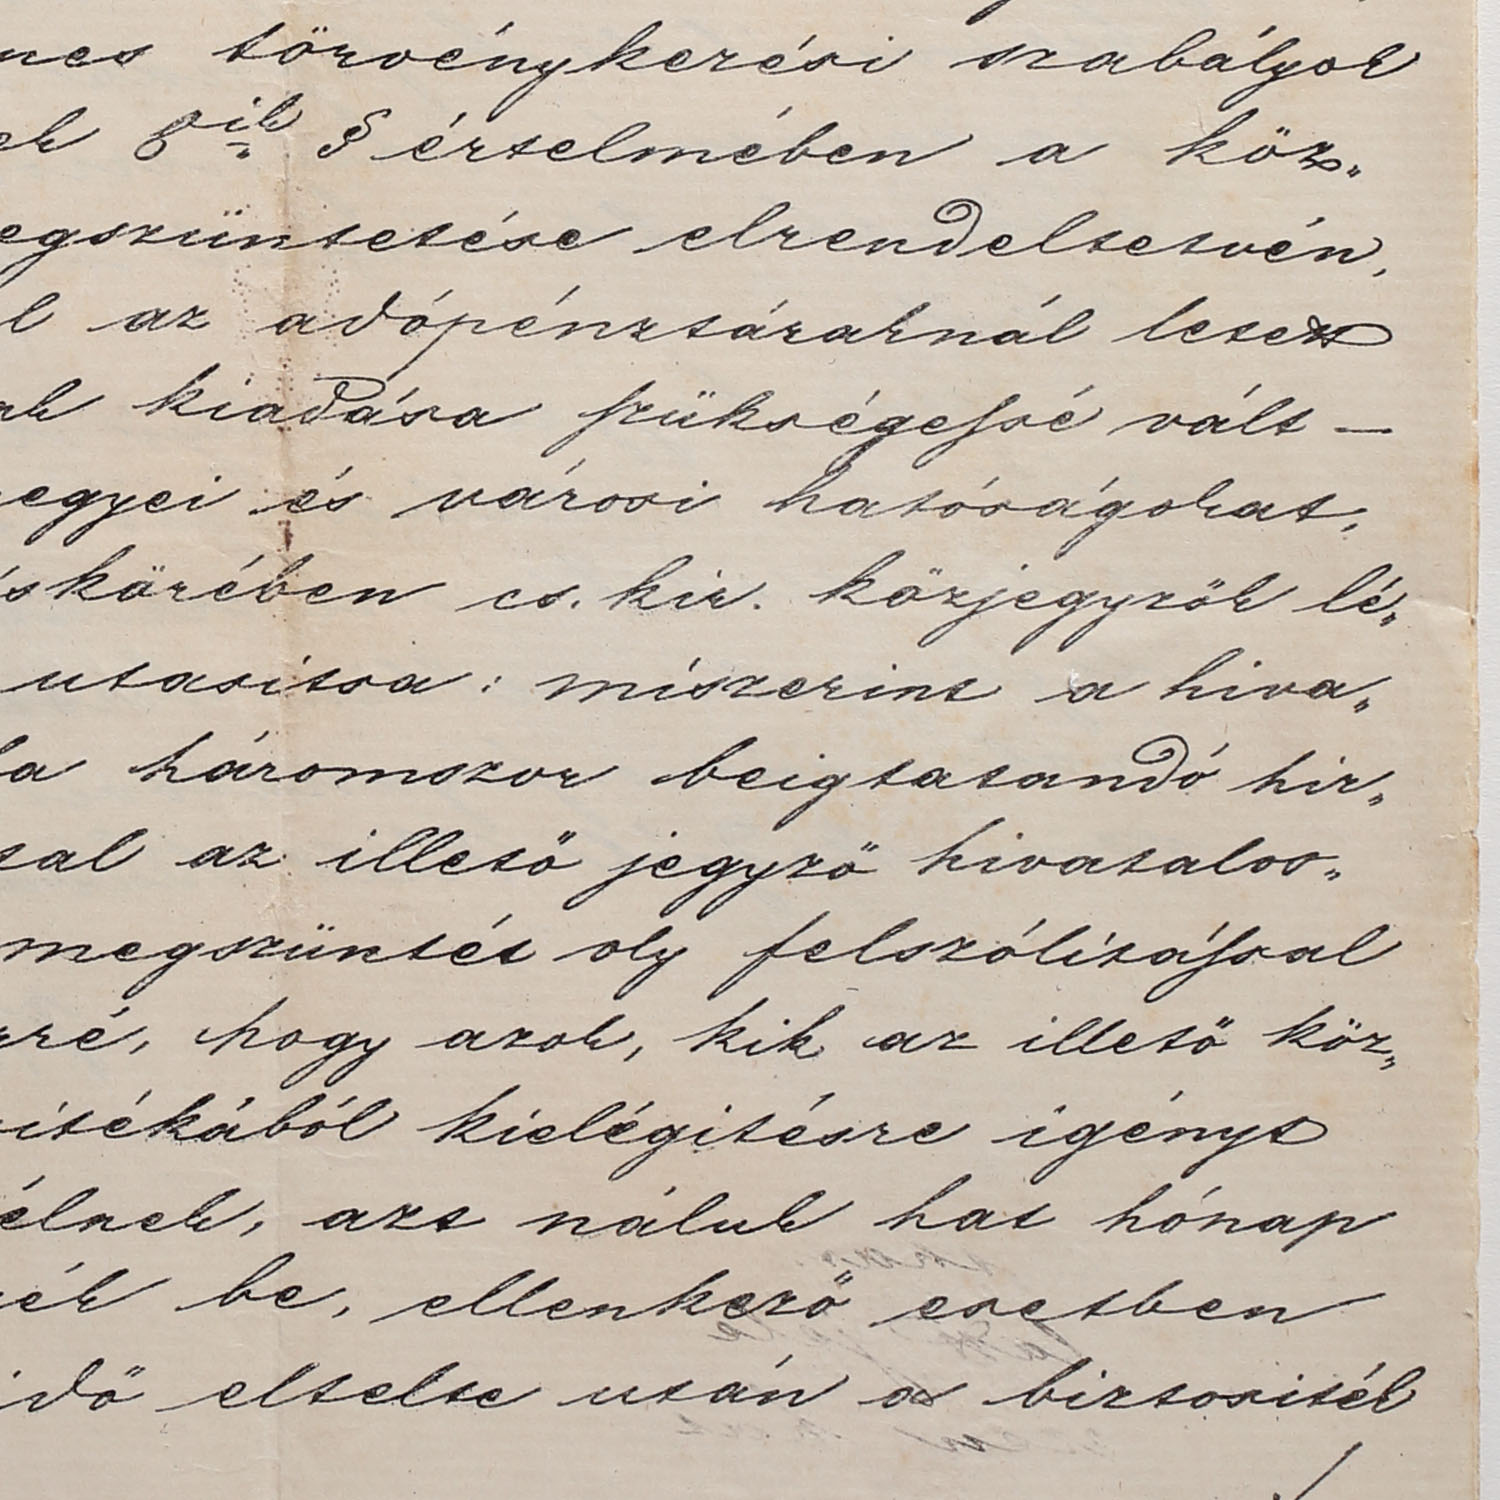 nes törvénykezési szabályok
ek 8ik § értelmében a köz„
egszüntetése elrendeltetvén,
l az adópénztáraknál letett
ak kiadása szükségessé vált —
egyei és városi hatóságokat,
éskörében cs. kir. közjegyzök lé„
utasitsa: miszerint a hiva„
ba háromszor beigtatandó hir„
tal az illető jegyző hivatalos„
megszüntét oly felszólitással
zzé, hogy azok, kik az illető köz„
sitékából kielégitésre igényt
élnek, azt náluk hat hónap
ék be, ellenkező esetben
idő eltelte után a biztositék